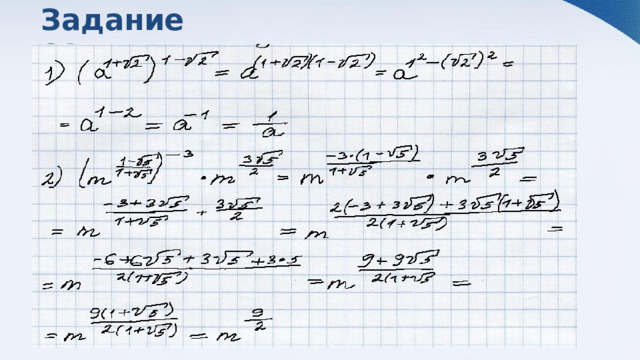 Задание
1) (a^(1+√2))^(1-√2) = a^((1+√2)(1-√2)) = a^(1²-(√2)²) =
= a^(1-2) = a^(-1) = 1/a
2) (m^((1-√5)/(1+√5)))^(-3) · m^(3√5/2) = m^((-3·(1-√5))/(1+√5)) · m^(3√5/2) =
= m^((-3+3√5)/(1+√5) + 3√5/2) = m^((2(-3+3√5)+3√5(1+√5))/(2(1+√5))) =
= m^((-6+6√5+3√5+3·5)/(2(1+√5))) = m^((9+9√5)/(2(1+√5)) =
= m^(9(1+√5)/(2(1+√5))) = m^(9/2)